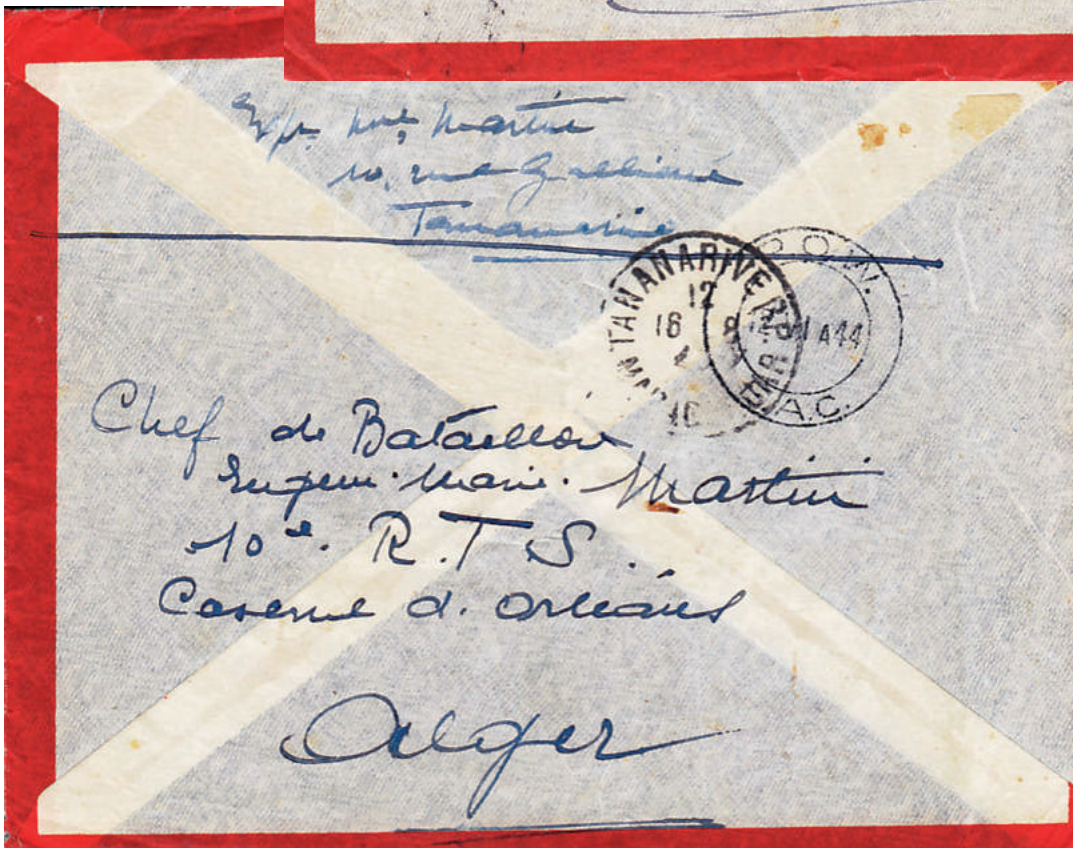 Exp. Mme Martin
10, rue Gallieni
Tananarive
TANANARIVE R.P.
12
16
P.O.W.
A44
E.A.C.
Chef de Bataillon
Eugène-Marie. Martin
10e. R.T.S.
Caserne d. Orléans
Alger